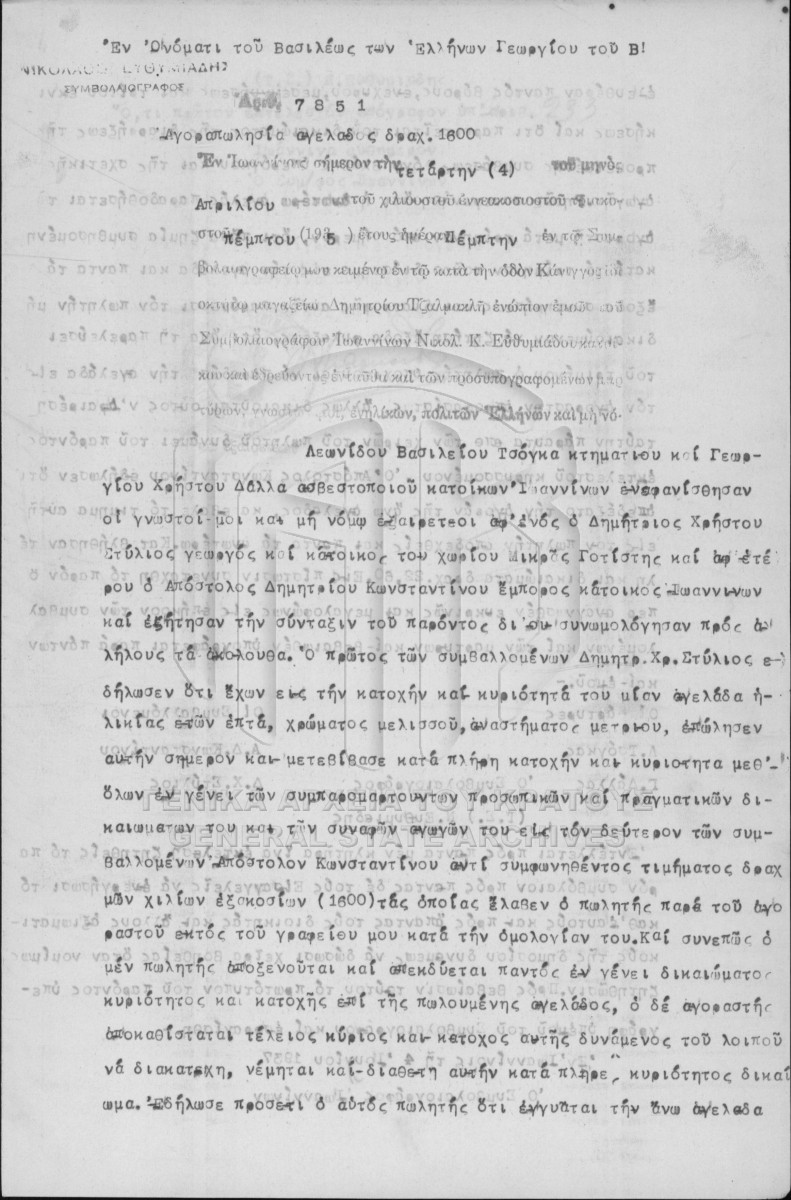 Ἐν Ὀνόματι τοῦ Βασιλέως των Ἑλλήνων Γεωργίου τοῦ Β!
ΝΙΚΟΛΑΟΣ ΕΥΘΥΜΙΑΔΗΣ
ΣΥΜΒΟΛΑΙΟΓΡΑΦΟΣ
Ἀριθ. 7851
Ἀγοραπωλησία ἀγελαδος δραχ. 1600
Ἐν Ἰωαννίνοις σήμερον τὴν τετάρτην (4) τοῦ μηνὸς
Απριλίου τοῦ χιλιοστοῦ ἐννεακοσιοστοῦ τριακο
στοῦ πέμπτου (1935) ἔτους ἡμέραν Πέμπτην ἐν τῷ Συμ
βολαιογραφείῳ μου κειμένῳ ἐν τῷ κατὰ τὴν ὁδὸν Κάνιγγος
μαγαζείῳ Δημητρίου Τζαλμακλῆ ἐνώπιον ἐμοῦ τοῦ
Συμβολαιογράφου Ἰωαννίνων Νικολ. Κ. Εὐθυμιάδου κατοί
κου καὶ ἑδρεύοντος ἐνταῦθα καὶ τῶν προσυπογραφομένων μαρ
τύρων, γνωστῶν μοι, ἐνηλίκων, πολιτῶν Ἑλλήνων καὶ μὴ νό-
Λεωνίδου Βασιλείου Τσόγκα κτηματιου καί Γεωρ-
γίου Χρήστου Δάλλα ασβεστοποιοῦ κατοίκων Ἰωαννίνων ἐνεφανίσθησαν
οἱ γνωστοί μοι και μή νόμῳ ἐξαιρετεοι ἀφ'ἑνός ὁ Δημήτριος Χρήστου
Στύλιος γεωργός καί κάτοικος του χωρίου Μικρᾶς Γοτίστης καί ἀφ ἑτέ
ρου ὁ Απόστολος Δημητρίου Κωνσταντίνου ἔμπορος κάτοικος Ἰωαννινων
καί ἐζήτησαν τήν σύνταξιν τοῦ παρόντος δι οὗ συνωμολόγησαν πρός ἀλ
λήλους τά ἀκόλουθα. Ὁ πρῶτος τῶν συμβαλλομένων Δημητρ.Χρ.Στύλιος ε-
δήλωσεν ὅτι ἔχων εἰς τήν κατοχήν καί κυριότητά του μίαν ἀγελάδα ἡ-
λικίας ἐτῶν ἑπτά, χρώματος μελισσοῦ, ἀναστήματος μετριου, ἐπώλησεν
αὐτήν σημερον και μετεβίβασε κατά πλήρη κατοχήν καί κυριοτητα μεθ'-
ὅλων ἐν γένει τῶν συμπαρομαρτουντων προσωπικῶν καί πραγματικῶν δι-
καιωματων του και τῶν συναφῶν ἀγωγῶν του εἰς τόν δεύτερον τῶν συμ-
βαλλομένων Ἀπόστολον Κωνσταντίνου αντί συμφωνηθέντος τιμήματος δραχ
μῶν χιλίων ἑξακοσίων (1600)τάς ὁποίας ἔλαβεν ὁ πωλητής παρά τοῦ ἀγο
ραστοῦ ἐκτός τοῦ γραφείου μου κατά τήν ὁμολογίαν του.Καί συνεπῶς ὁ
μέν πωλητής ἀποξενοῦται καί ἀπεκδύεται παντός ἐν γένει δικαιώματος
κυριότητος και κατοχῆς ἐπί τῆς πωλουμένης ἀγελάδος, ὁ δέ ἀγοραστής
ἀποκαθίσταται τέλειος κύριος και κάτοχος αὐτῆς δυνάμενος τοῦ λοιποῦ
νά διακατεχη, νέμηται και διαθετη αυτήν κατά πλῆρες κυριότητος δικαί
ωμα. Ἐδήλωσε προσετι ὁ αὐτός πωλητής ὅτι ἐγγυᾶται τήν ἄνω ἀγελαδα
ΓΕΝΙΚΑ ΑΡΧΕΙΑ ΤΟΥ ΚΡΑΤΟΥΣ
GENERAL STATE ARCHIVES